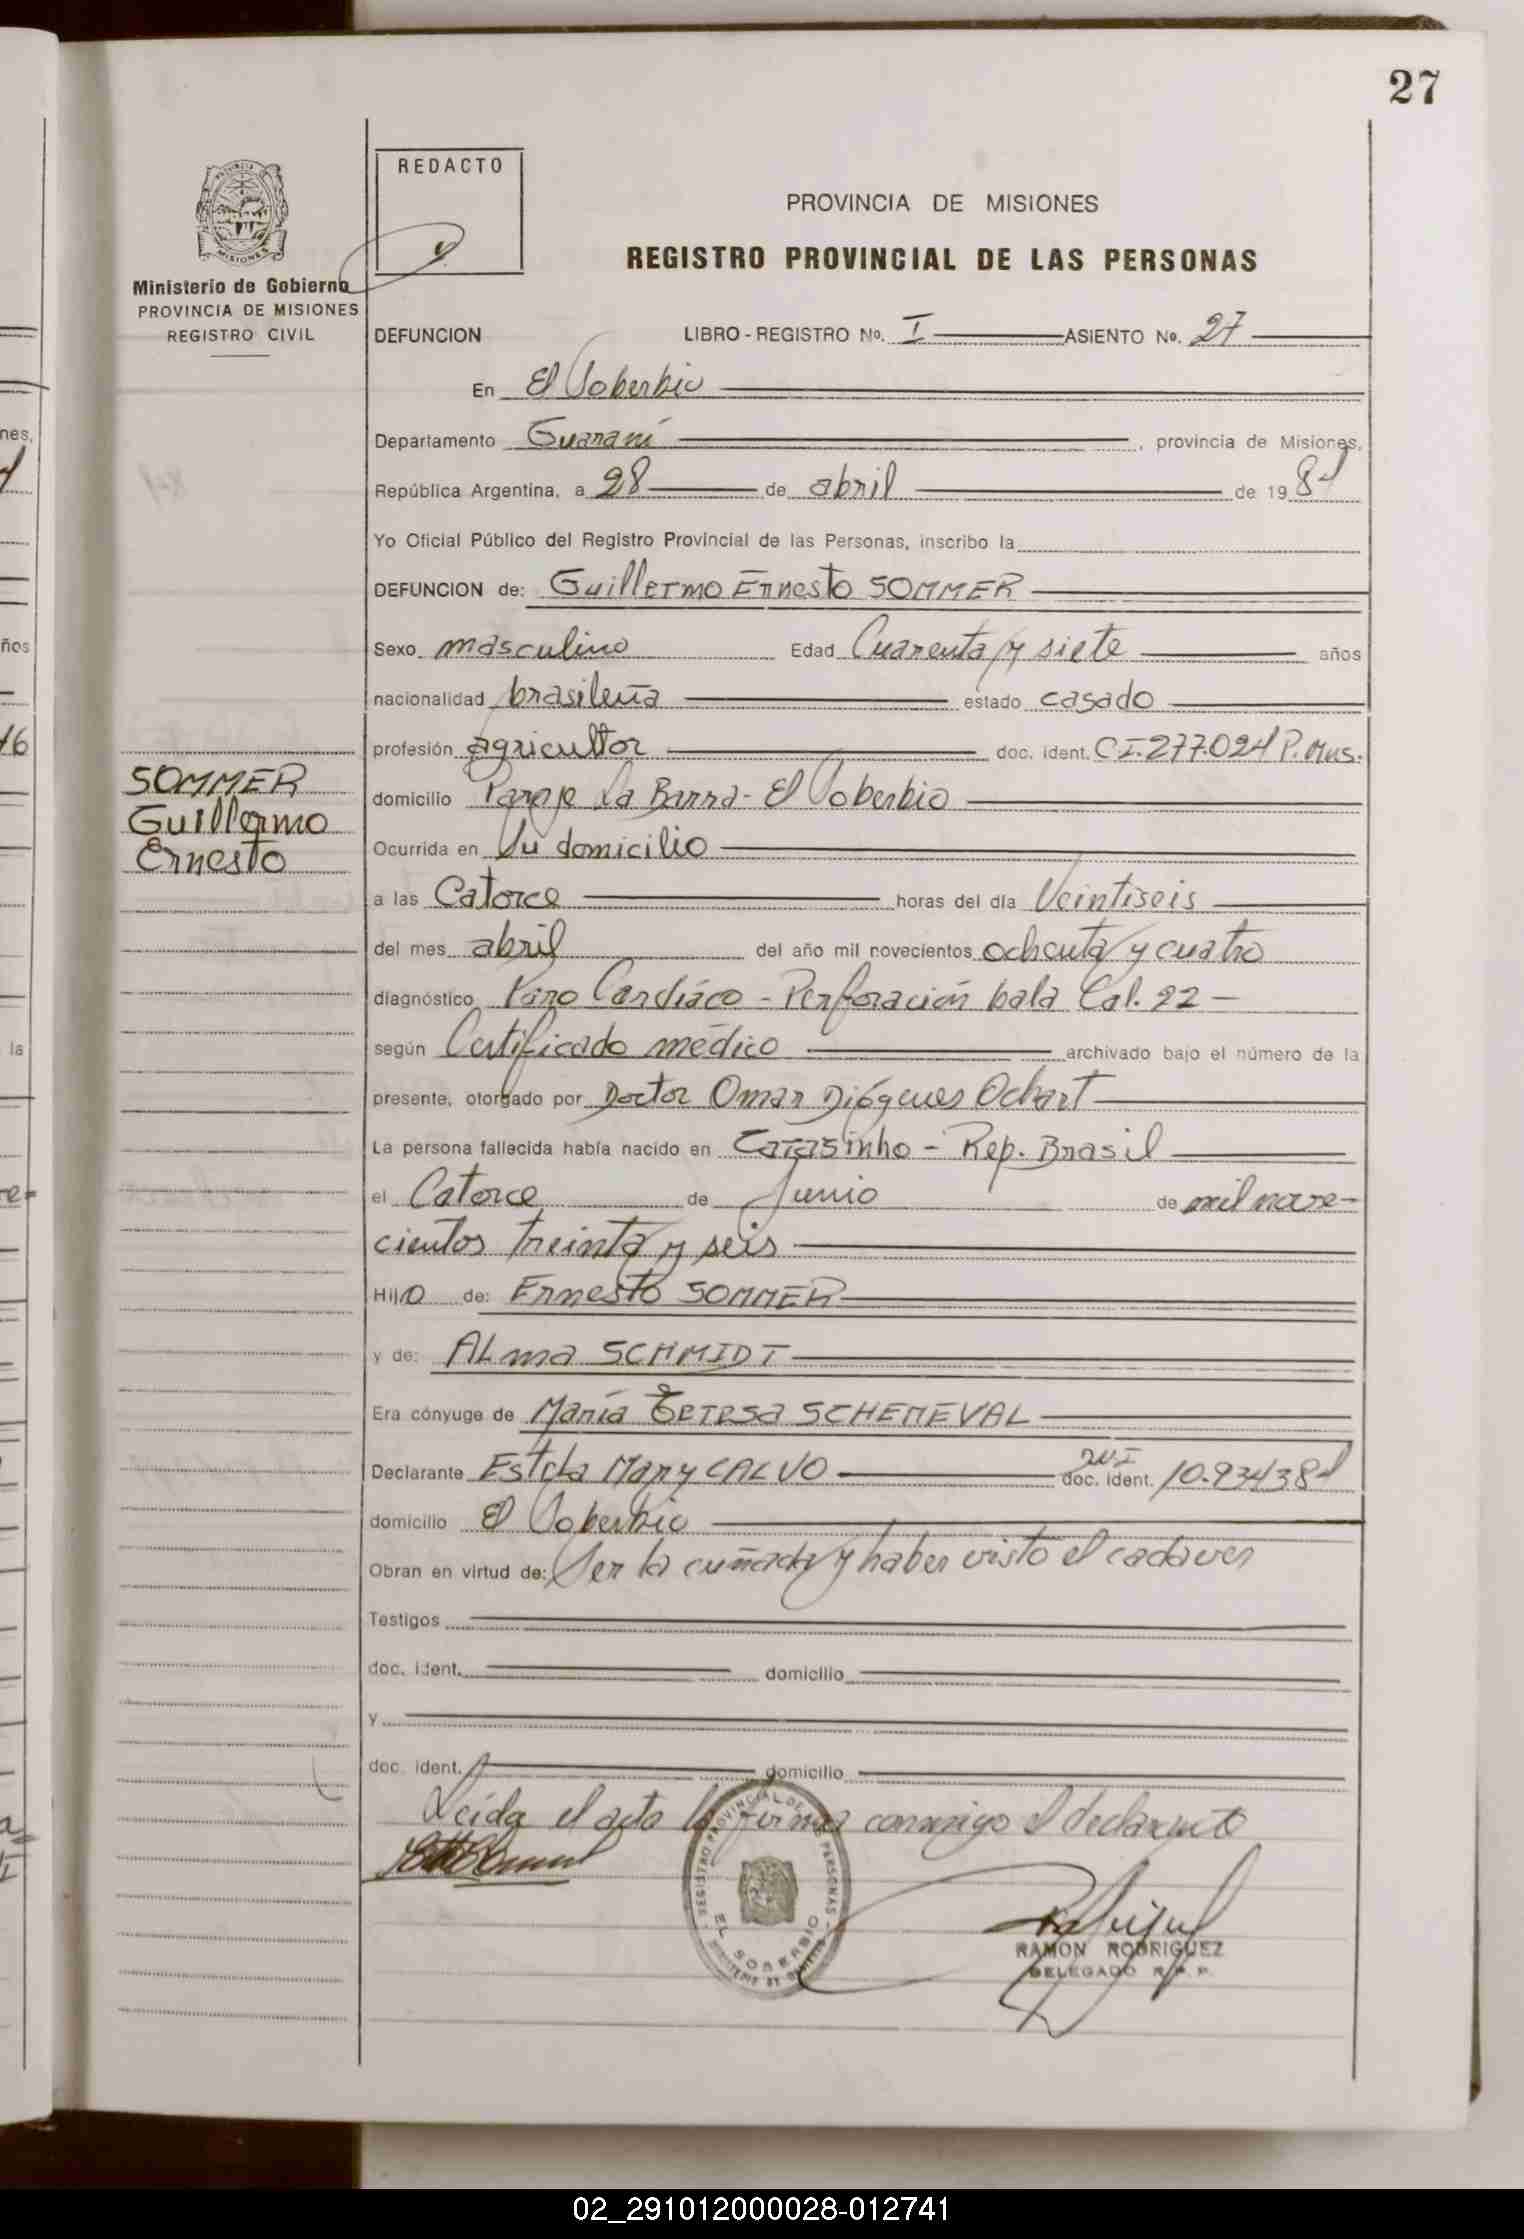 27
REDACTO
PROVINCIA DE MISIONES
REGISTRO PROVINCIAL DE LAS PERSONAS
Ministerio de Gobierno
PROVINCIA DE MISIONES
REGISTRO CIVIL
DEFUNCION LIBRO - REGISTRO No. I ASIENTO No. 27
En El Soberbio
Departamento Guaraní, provincia de Misiones,
República Argentina, a 28 de abril de 1984
Yo Oficial Público del Registro Provincial de las Personas, inscribo la
DEFUNCION de: Guillermo Ernesto SOMMER
Sexo masculino Edad Cuarenta y siete años
nacionalidad brasileña estado casado
profesión agricultor doc. ident. C.I. 277.024 P. Mns.
SOMMER
Guillermo
Ernesto
domicilio Paraje La Barra - El Soberbio
Ocurrida en Su domicilio
a las Catorce horas del día Veintiseis
del mes abril del año mil novecientos ochenta y cuatro
diagnóstico Paro Cardíaco - Perforación bala Cal. 22 -
según Certificado médico archivado bajo el número de la
presente, otorgado por Doctor Omar Diógenes Ochart
La persona fallecida había nacido en Carasinho - Rep. Brasil
el Catorce de Junio de mil nove-
cientos treinta y seis
Hijo de: Ernesto SOMMER
y de: ALma SCHMIDT
Era cónyuge de María Teresa SCHEMEVAL
Declarante Estela Mary CALVO doc. ident. 10.934384
domicilio El Soberbio
Obran en virtud de: Ser la cuñada y haber visto el cadaver
Testigos
doc. ident. domicilio
y
doc. ident. domicilio
Leída el acta la firma conmigo el declarante
REGISTRO PROVINCIAL DE LAS PERSONAS
EL SOBERBIO
RAMON RODRIGUEZ
DELEGADO R. P. P.
02_291012000028-012741